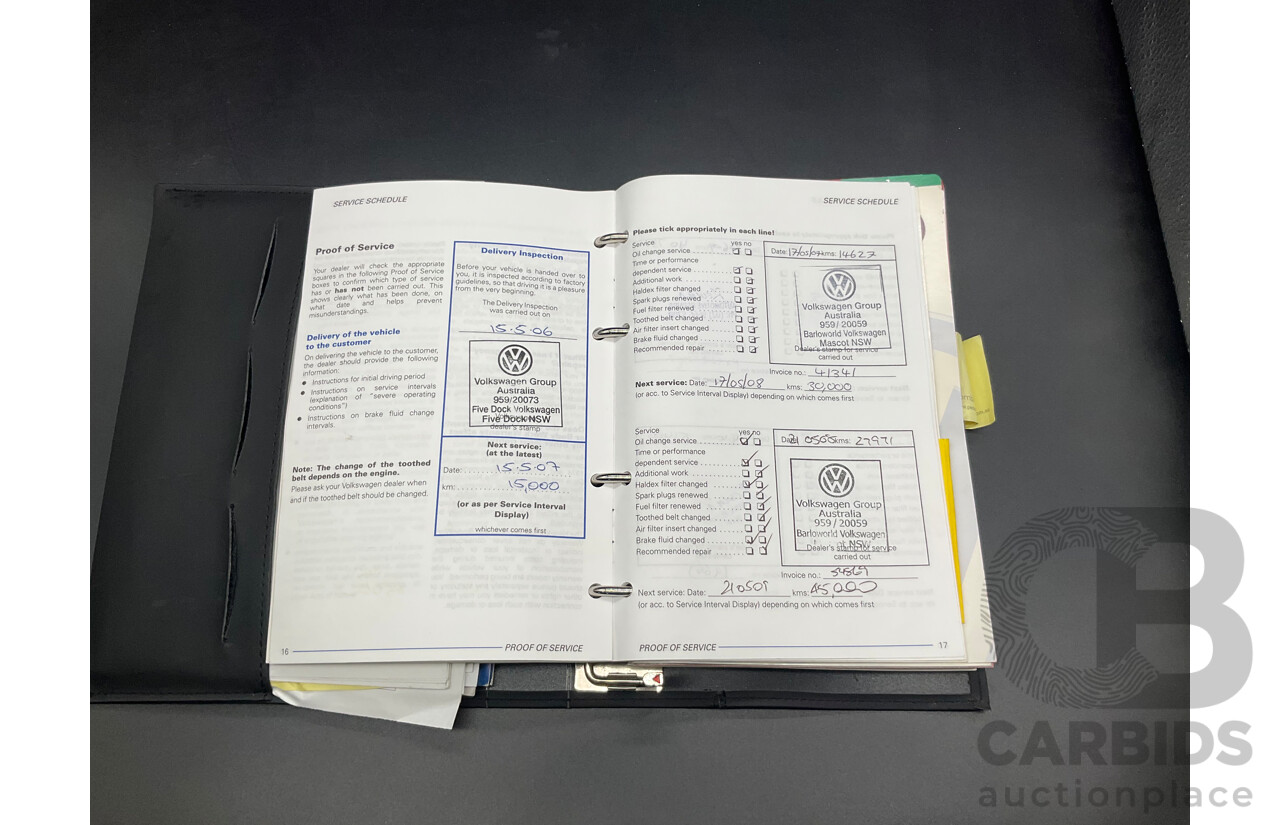 SERVICE SCHEDULE
Proof of Service
Your dealer will check the appropriate
squares in the following Proof of Service
boxes to confirm which type of service
has or has not been carried out. This
shows clearly what has been done, on
what date and helps prevent
misunderstandings.
Delivery of the vehicle
to the customer
On delivering the vehicle to the customer,
the dealer should provide the following
information:
● Instructions for initial driving period
● Instructions on service intervals
(explanation of "severe operating
conditions")
● Instructions on brake fluid change
intervals.
Note: The change of the toothed
belt depends on the engine.
Please ask your Volkswagen dealer when
and if the toothed belt should be changed.
Delivery Inspection
Before your vehicle is handed over to
you, it is inspected according to factory
guidelines, so that driving it is a pleasure
from the very beginning.
The Delivery Inspection
was carried out on
15.5.06
Volkswagen Group
Australia
959/20073
Five Dock Volkswagen
Five Dock NSW
dealer's stamp
Next service:
(at the latest)
Date: 15.5.07
km: 15,000
(or as per Service Interval
Display)
whichever comes first
16 PROOF OF SERVICE
SERVICE SCHEDULE
Please tick appropriately in each line!
Service yes no
Oil change service
Time or performance
dependent service
Additional work
Haldex filter changed
Spark plugs renewed
Fuel filter renewed
Toothed belt changed
Air filter insert changed
Brake fluid changed
Recommended repair
Date: 17/05/07 kms: 14627
Volkswagen Group
Australia
959 / 20059
Barloworld Volkswagen
Mascot NSW
Dealer's stamp for service
carried out
Invoice no.: 41341
Next service: Date: 17/05/08 kms: 30,000
(or acc. to Service Interval Display) depending on which comes first
Service yes no
Oil change service
Time or performance
dependent service
Additional work
Haldex filter changed
Spark plugs renewed
Fuel filter renewed
Toothed belt changed
Air filter insert changed
Brake fluid changed
Recommended repair
kms: 27971
Volkswagen Group
Australia
959 / 20059
Barloworld Volkswagen
NSW
Dealer's stamp for service
carried out
Invoice no.: 54569
Next service: Date: 210509 kms: 45,000
(or acc. to Service Interval Display) depending on which comes first
PROOF OF SERVICE 17
CB
CARBIDS
auctionplace